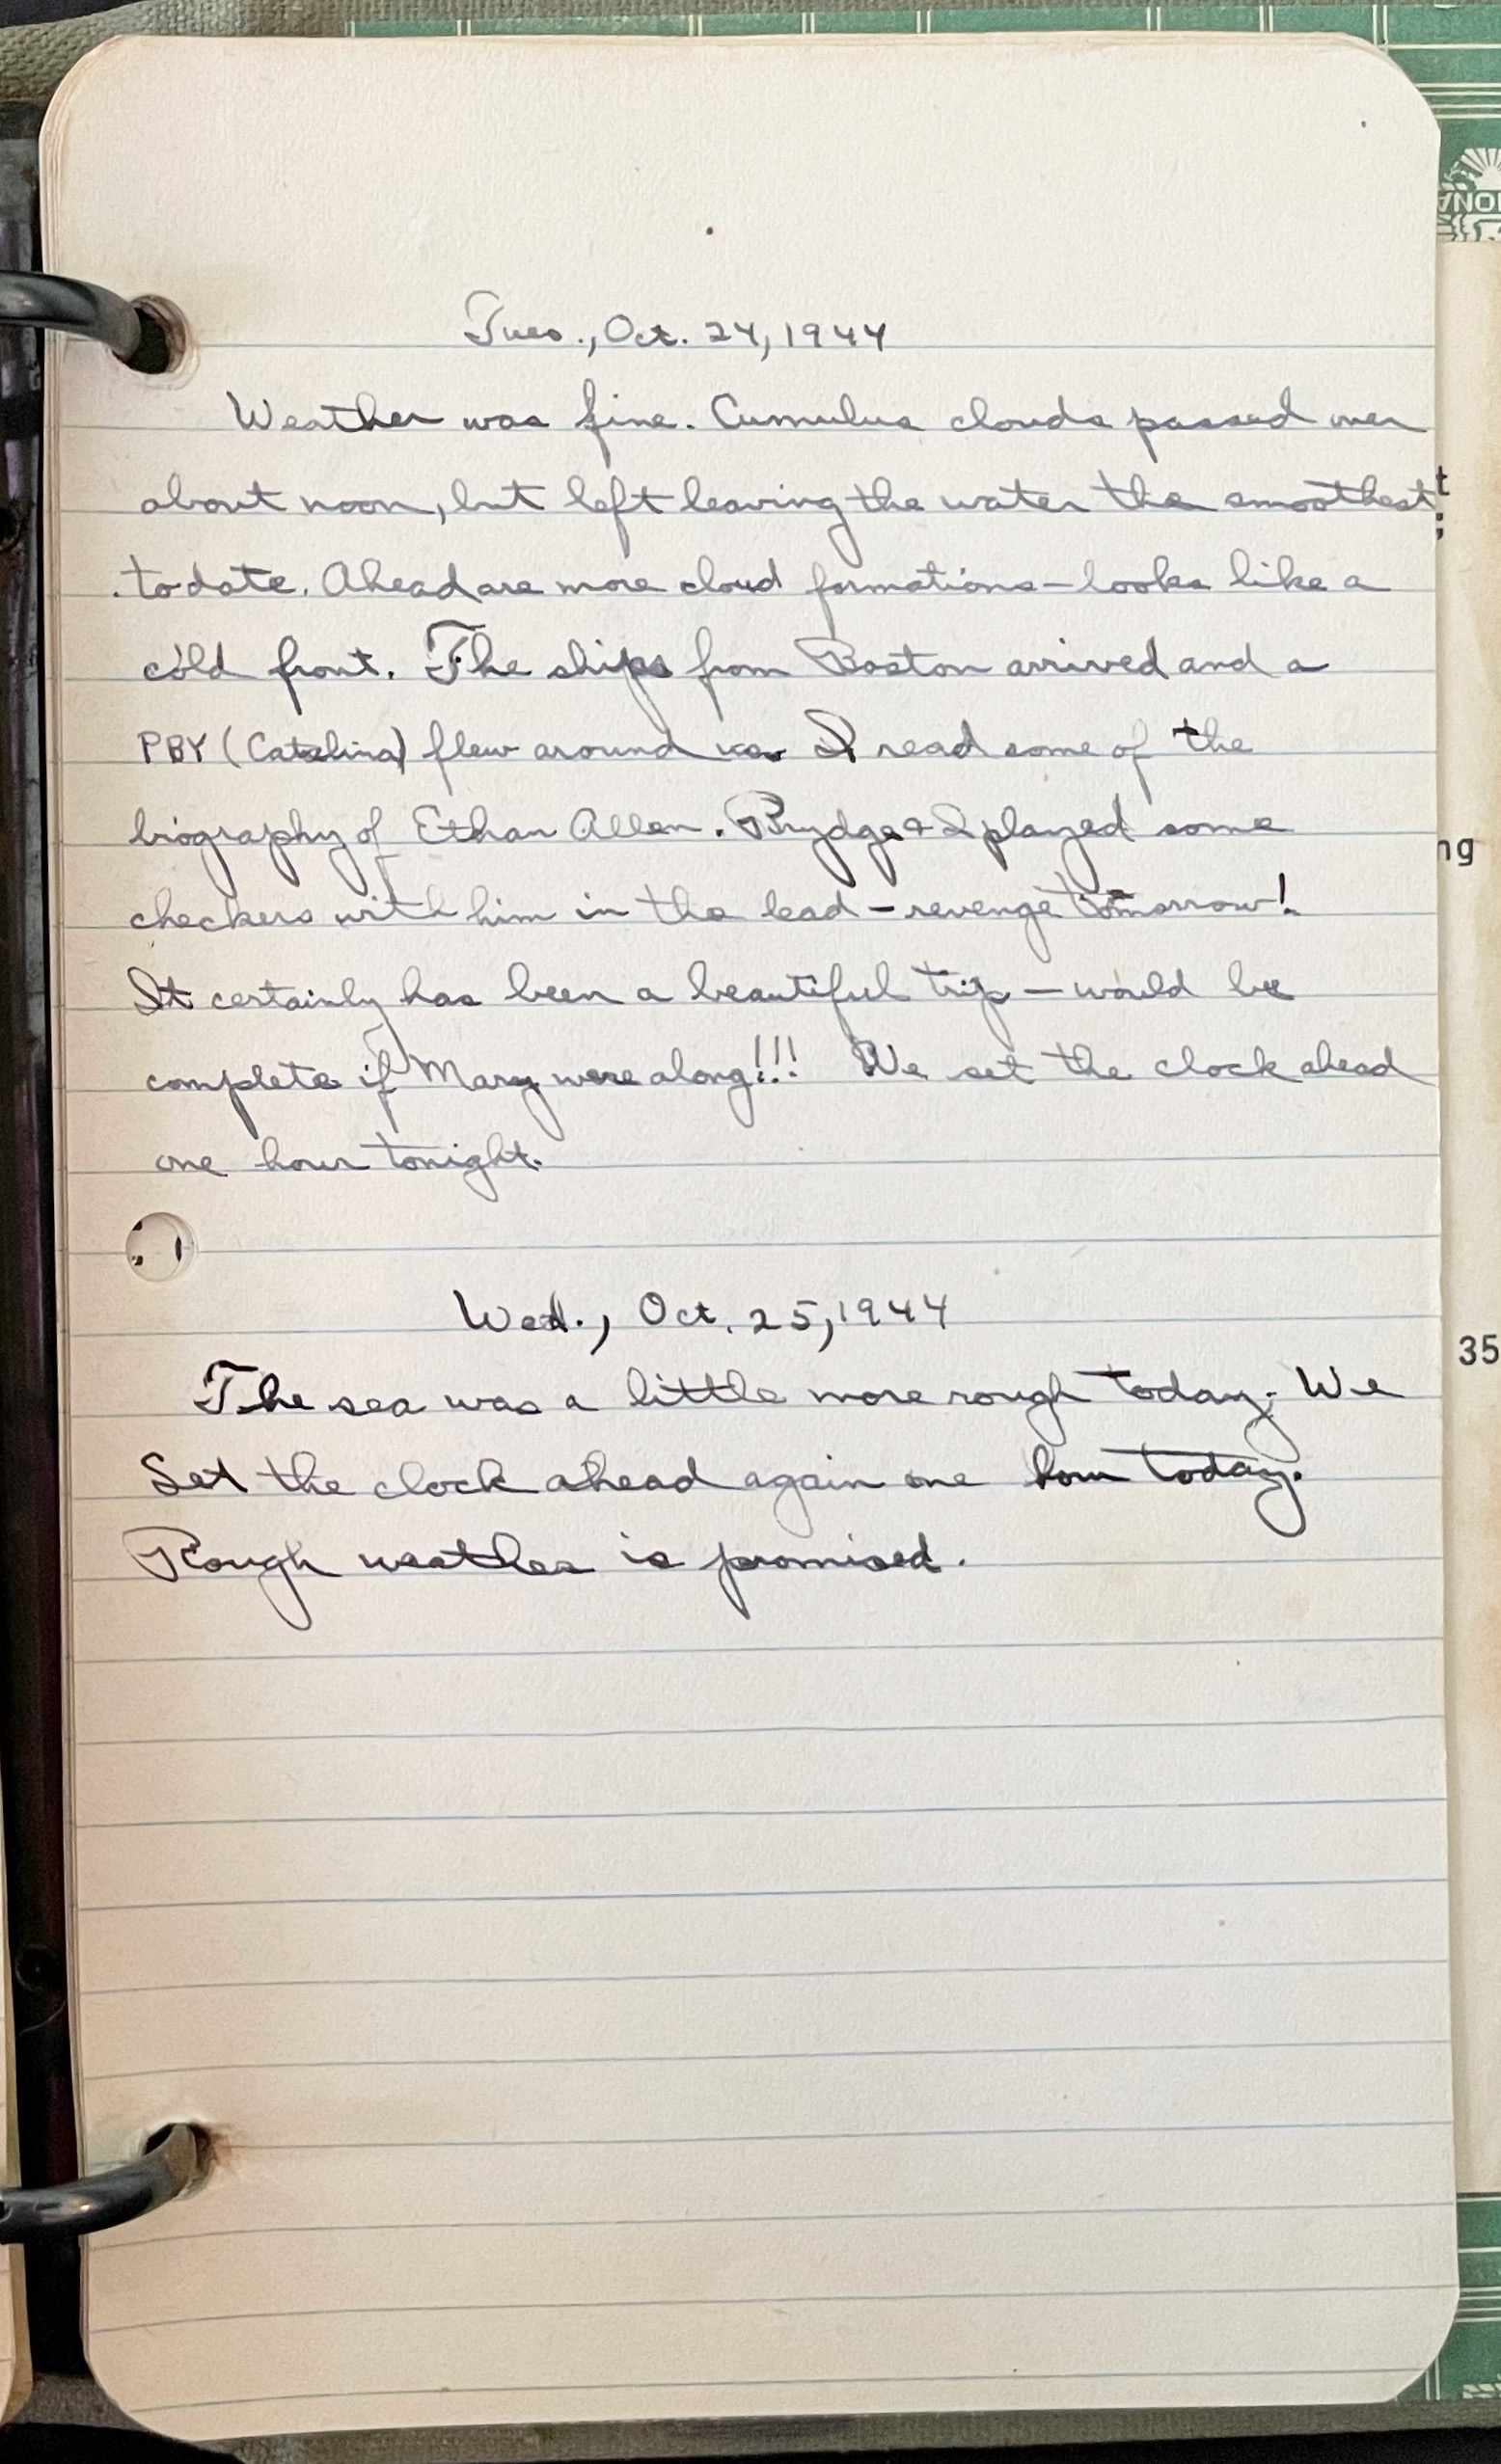 Tues., Oct. 24, 1944
Weather was fine. Cumulus clouds passed over
about noon, but left leaving the water the smoothest
to date. Ahead are more cloud formations—looks like a
cold front. The ships from Boston arrived and a
PBY (Catalina) flew around us. I read some of the
biography of Ethan Allen. Brydge & I played some
checkers with him in the lead—revenge tomorrow!
It certainly has been a beautiful trip—would be
complete if Mary were along!!! We set the clock ahead
one hour tonight.
Wed., Oct. 25, 1944
The sea was a little more rough today. We
Set the clock ahead again one hour today.
Rough weather is promised.
t
;
ng
35